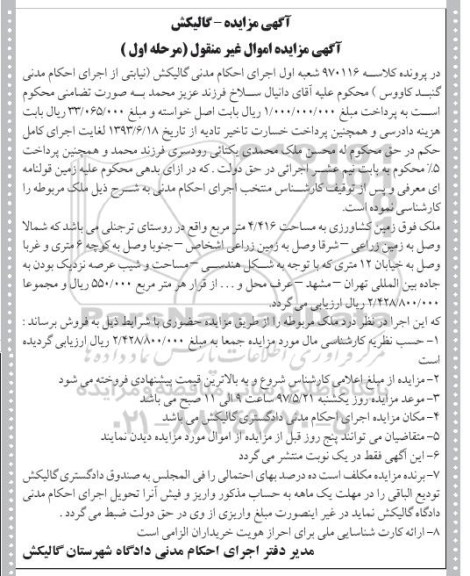 آگهی مزایده - گالیکش
آگهی مزایده اموال غیر منقول (مرحله اول )
در پرونده کلاسه ۹۷۰۱۱۶ شعبه اول اجرای احکام مدنی گالیکش (نیابتی از اجرای احکام مدنی
گنبد کاووس ) محکوم علیه آقای دانیال سلاخ فرزند عزیز محمد به صورت تضامنی محکوم
است به پرداخت مبلغ ۱/۰۰۰/۰۰۰/۰۰۰ ریال بابت اصل خواسته و مبلغ ۳۳/۰۶۵/۰۰۰ ریال بابت
هزینه دادرسی و همچنین پرداخت خسارت تاخیر تادیه از تاریخ ۱۳۹۳/۶/۱۸ لغایت اجرای کامل
حکم در حق محکوم له محسن ملک محمدی یکتائی رودسری فرزند محمد و همچنین پرداخت
۵٪ محکوم به بابت نیم عشر اجرائی در حق دولت . که در ازای بدهی محکوم علیه زمین قولنامه
ای معرفی و پس از توقیف کارشناس منتخب اجرای احکام مدنی به شرح ذیل ملک مربوطه را
کارشناسی نموده است.
ملک فوق زمین کشاورزی به مساحت ۴/۴۱۶ متر مربع واقع در روستای ترجنلی می باشد که شمالا
وصل به زمین زراعی – شرقا وصل به زمین زراعی اشخاص – جنوبا وصل به کوچه ۶ متری و غربا
وصل به خیابان ۱۲ متری که با توجه به شکل هندسی – مساحت و شیب عرصه نزدیک بودن به
جاده بین المللی تهران – مشهد – عرف محل و ... از قرار هر متر مربع ۵۵۰/۰۰۰ ریال و مجموعا
۲/۴۲۸/۸۰۰/۰۰۰ ریال ارزیابی می گردد.
که این اجرا در نظر درد ملک مربوطه را از طریق مزایده حضوری با شرایط ذیل به فروش برساند :
۱- حسب نظریه کارشناسی مال مورد مزایده جمعا به مبلغ ۲/۴۲۸/۸۰۰/۰۰۰ ریال ارزیابی گردیده
است
۲- مزایده از مبلغ اعلامی کارشناس شروع و به بالاترین قیمت پیشنهادی فروخته می شود
۳- موعد مزایده روز یکشنبه ۹۷/۵/۲۱ ساعت ۹ الی ۱۱ صبح می باشد
۴- مکان مزایده اجرای احکام مدنی دادگستری گالیکش می باشد
۵- متقاضیان می توانند پنج روز قبل از مزایده از اموال مورد مزایده دیدن نمایند
۶- این آگهی فقط در یک نوبت منتشر می گردد
۷- برنده مزایده مکلف است ده درصد بهای احتمالی را فی المجلس به صندوق دادگستری گالیکش
تودیع الباقی را در مهلت یک ماهه به حساب مذکور واریز و فیش آنرا تحویل اجرای احکام مدنی
دادگاه گالیکش نماید در غیر اینصورت مبلغ واریزی از وی در حق دولت ضبط می گردد .
۸- ارائه کارت شناسایی ملی برای احراز هویت خریداران الزامی است
مدیر دفتر اجرای احکام مدنی دادگاه شهرستان گالیکش